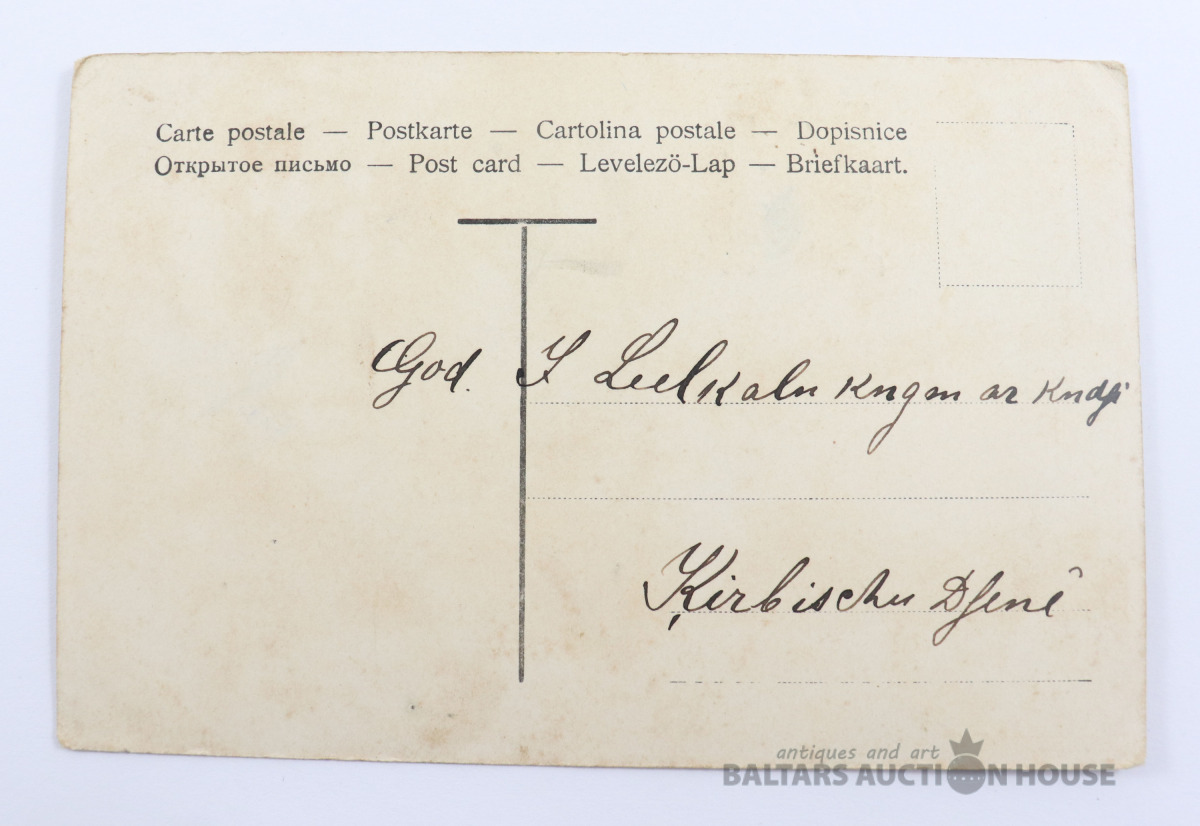 Carte postale — Postkarte — Cartolina postale — Dopisnice
Открытое письмо — Post card — Levelezö-Lap — Briefkaart.
God. J Leelkaln kngm ar kndſi
Ķirbischu Dſenê
antiques and art
BALTARS AUCTION HOUSE